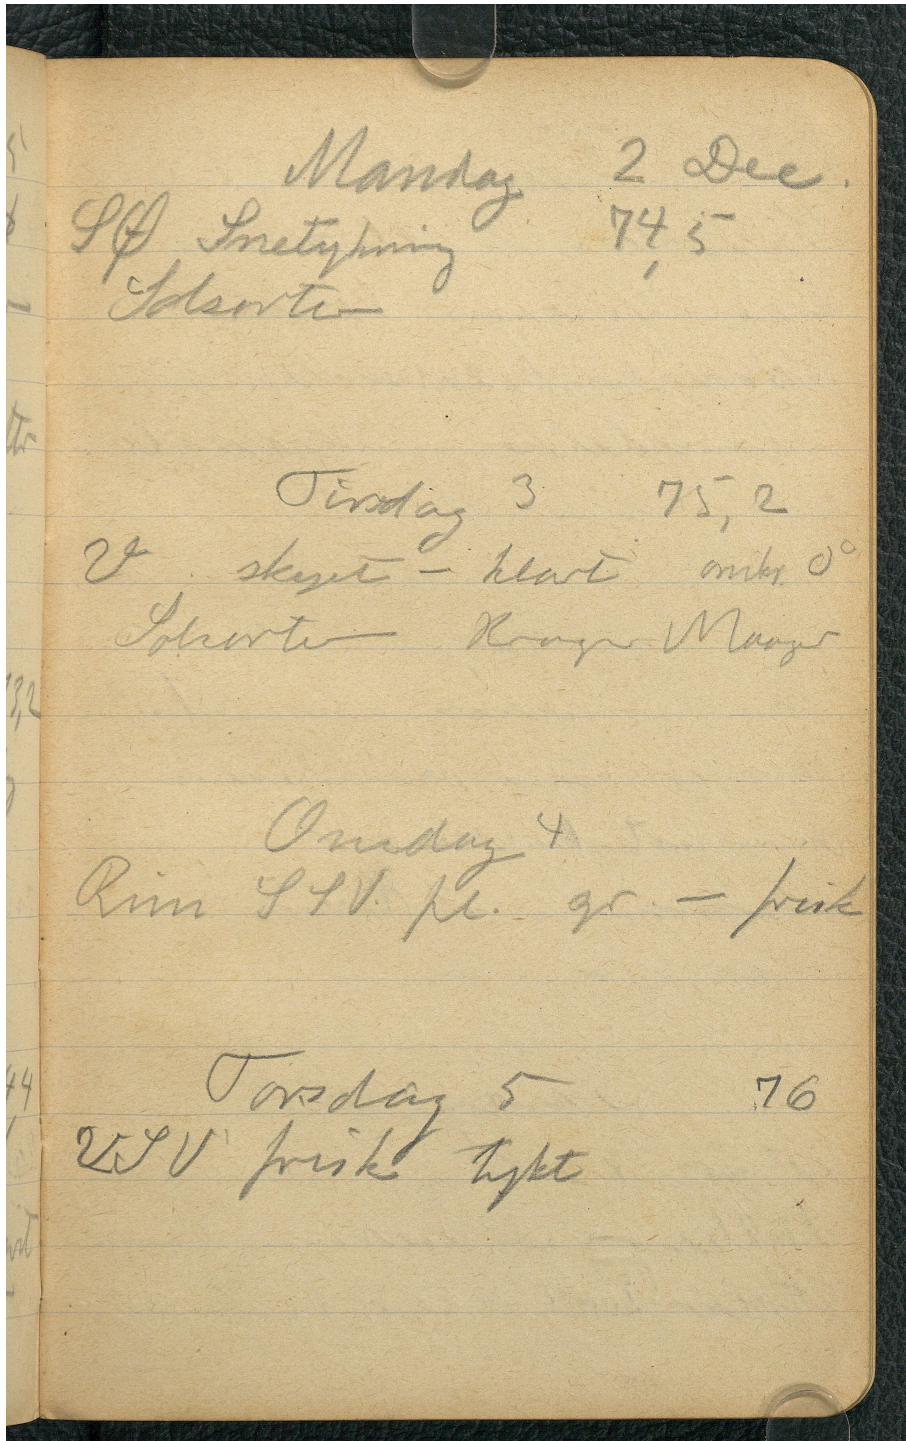 Mandag 2 Dec.
SØ Snetykning 74,5
Solsorten
Tirsdag 3 75,2
V skyet – klart omkr. 0°
Solsorten Krager Maager
Onsdag 4
Rim SSV. fl. gr. – frisk
Torsdag 5 76
VSV frisk tykt